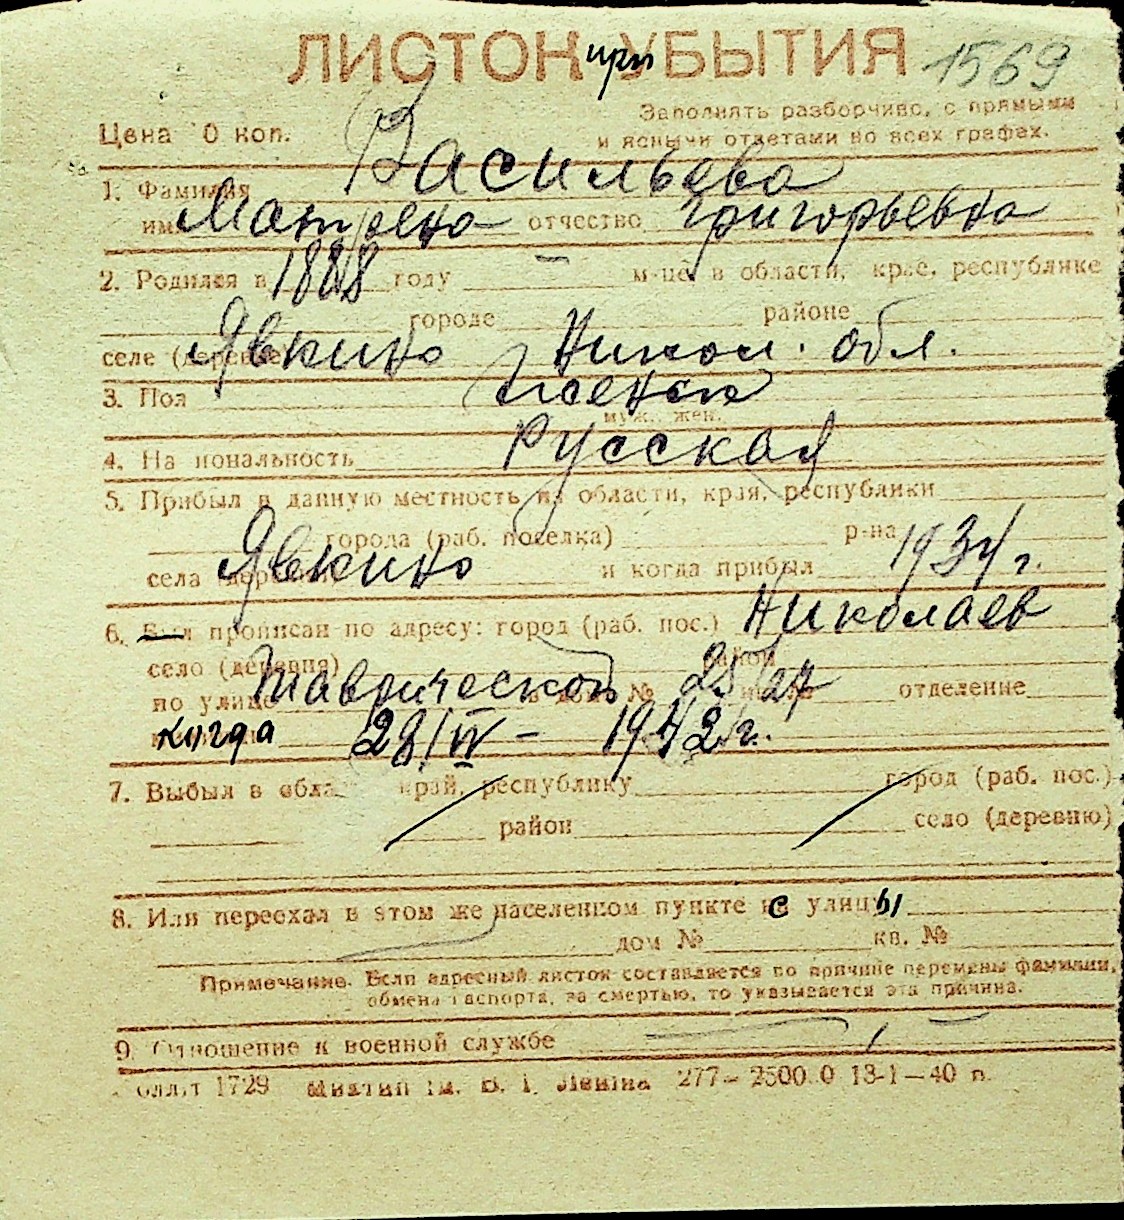 ЛИСТОК при УБЫТИЯ 1569
Заполнять разборчиво, с прямыми
Цена 0 коп. и ясными ответами во всех графах.
1. Фамилия Васильева
имя Матрена отчество Григорьевна
2. Родился в 1888 году — м-це, в области, крае, республике
городе районе
селе (деревне) Явкино Никол. обл.
3. Пол женск
муж., жен.
4. Национальность Русская
5. Прибыл в данную местность из области, края, республики
города (раб. поселка) р-на
села (деревни) Явкино и когда прибыл 1934 г.
6. Был прописан по адресу: город (раб. пос.) Николаев
село (деревня) район
по улице Таврической в доме № 25/27 отделение
когда 28/IV – 1942 г.
7. Выбыл в обла край, республику город (раб. пос.)
район село (деревню)
8. Или переехал в этом же населенном пункте с улицы
дом № кв. №
Примечание. Если адресный листок составляется по причине перемены фамилии,
обмена паспорта, за смертью, то указывается эта причина.
9. Отношение к военной службе
1729 ім. В. І. Леніна 277– 2500.0 13-1–40 п.